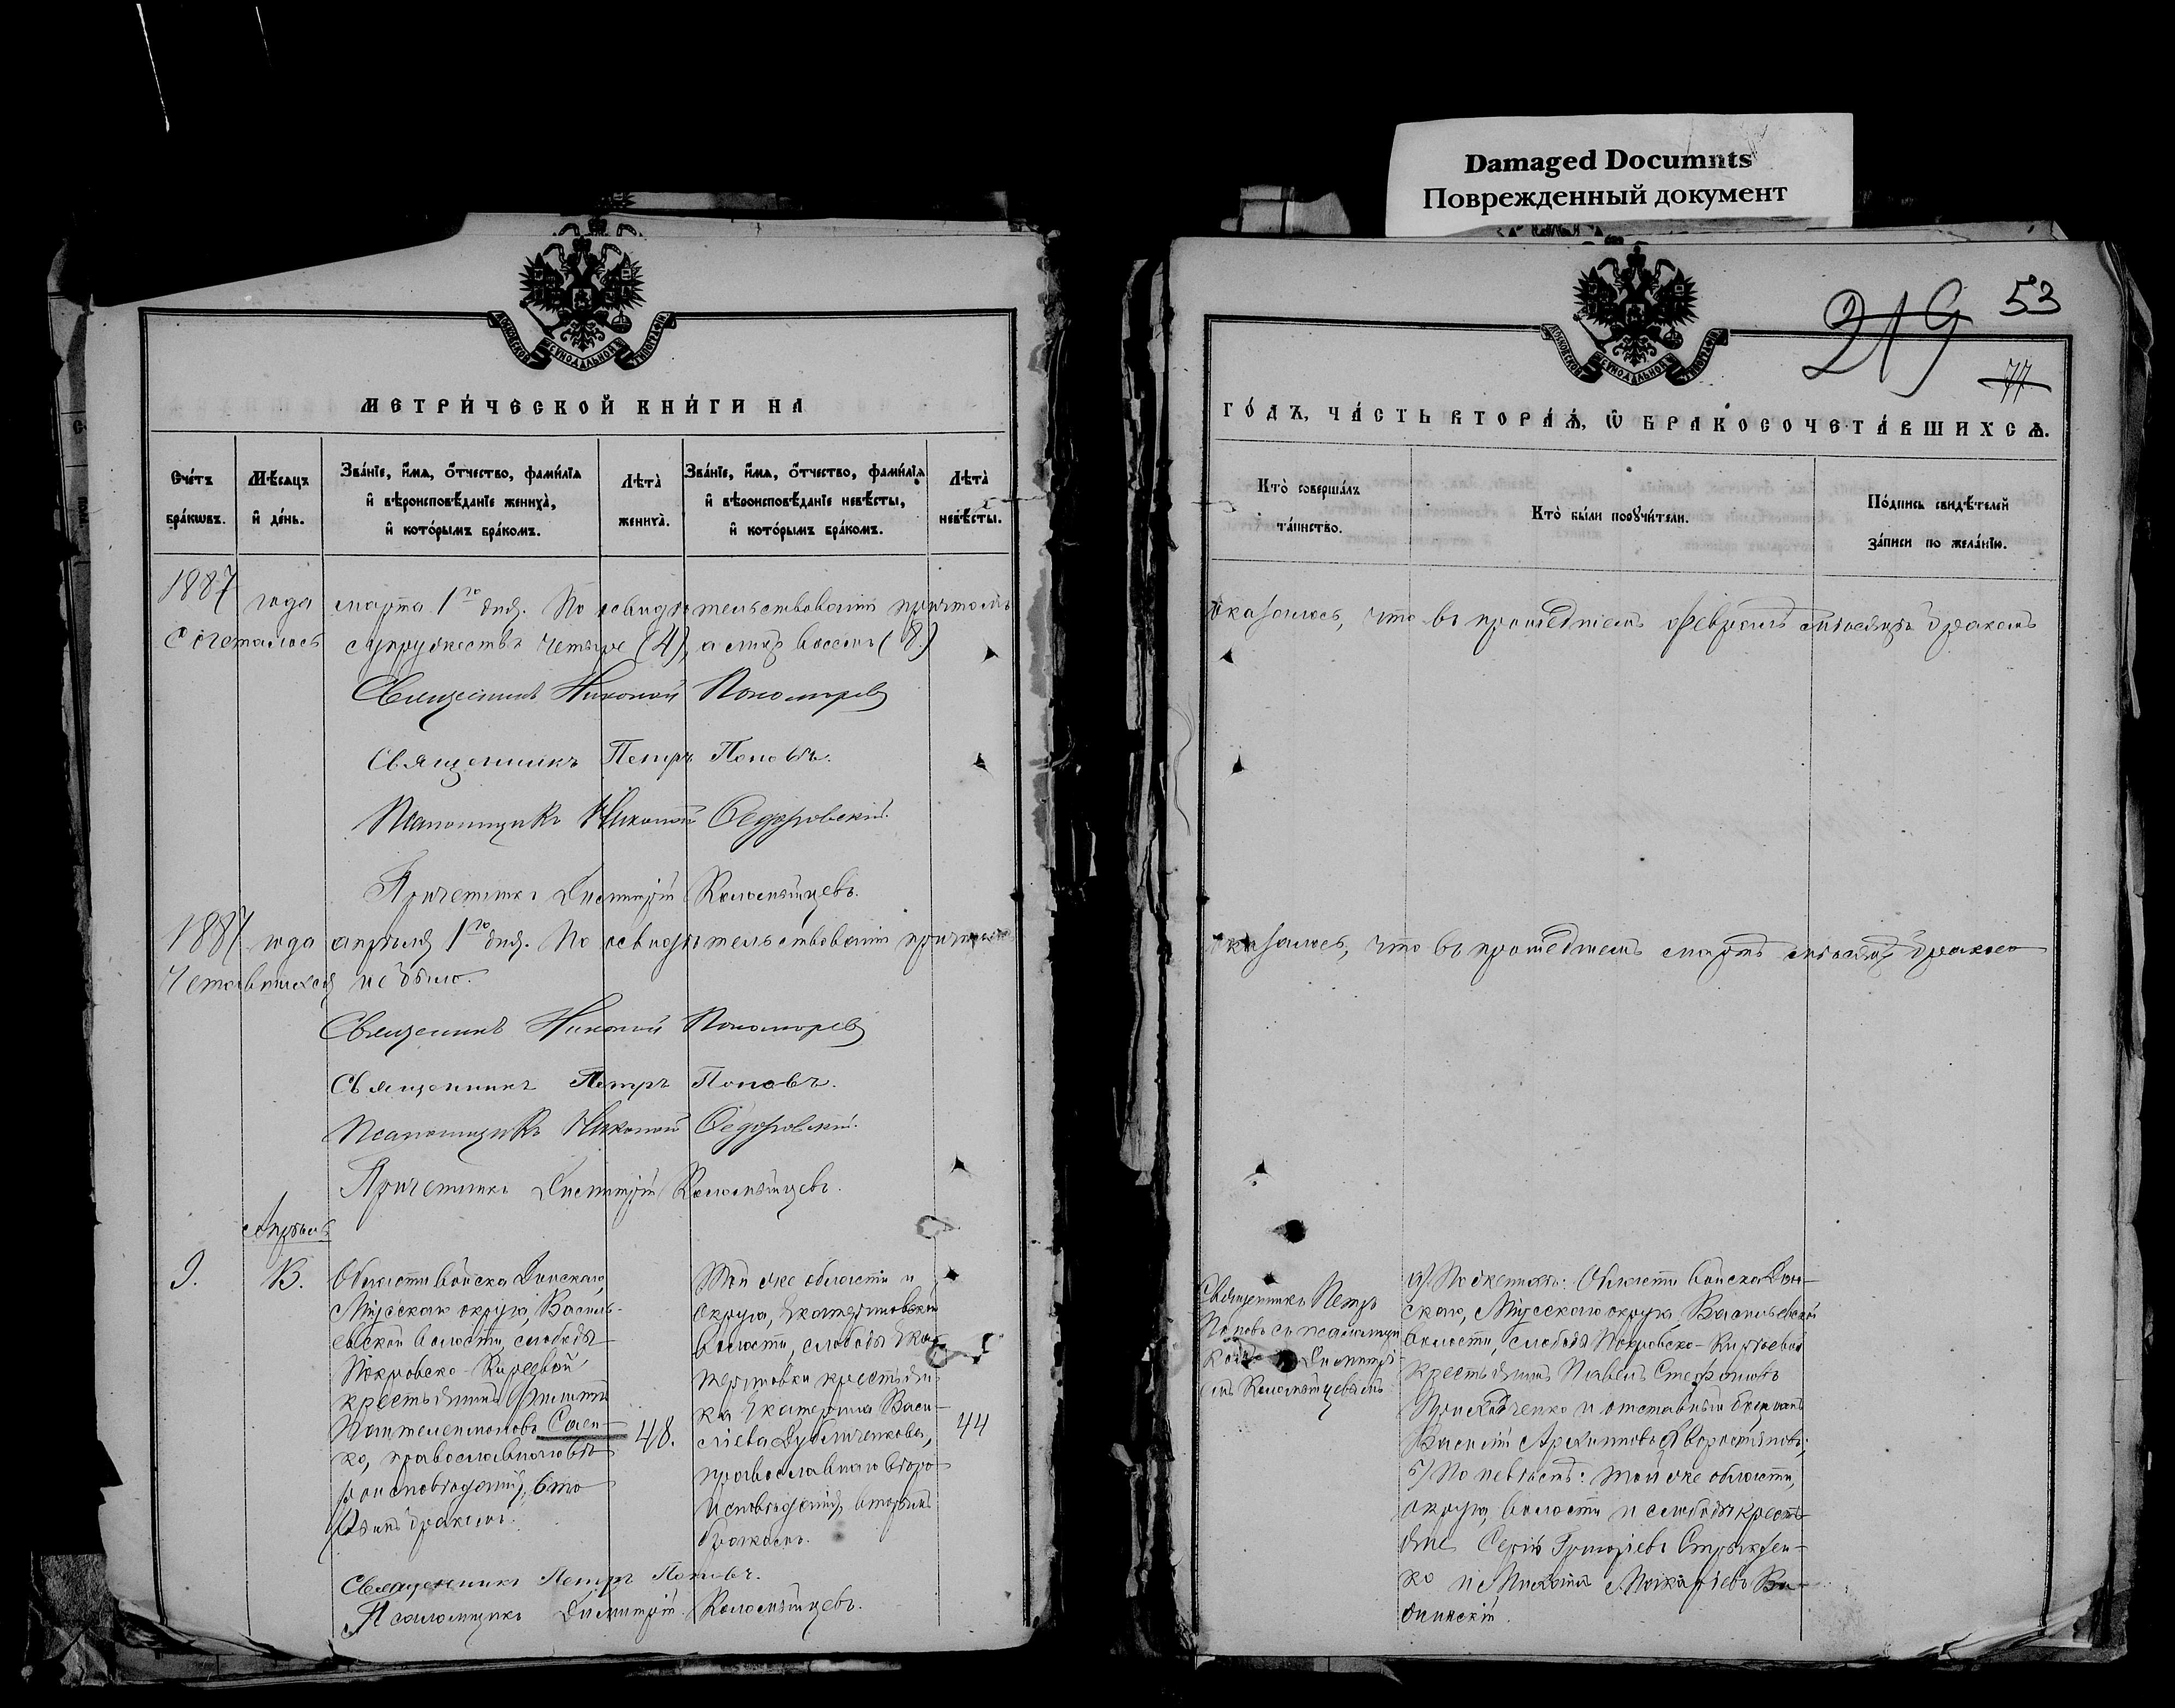 Damaged Documnts
Поврежденный документ
МОСКОВСКОЙ СУНОДАЛЬНОЙ ТИПОГРАФІИ
МЕТРИ́ЧЕСКОЙ КНИ́ГИ НА
Сче́тъ бра́кѡвъ.
Мѣ́сяцъ и де́нь.
Зва́нїе, и́мѧ, о́тчество, фами́лїѧ и вѣроисповѣ́данїе жениха̀, и кото́рымъ бра́комъ.
Лѣта̀ жениха̀.
Зва́нїе, и́мѧ, о́тчество, фами́лїѧ и вѣроисповѣ́данїе невѣ́сты, и кото́рымъ бра́комъ.
Лѣта̀ невѣ́сты.
1887 года марта 1го дня. По освидѣтельствованіи причтомъ
сочеталось супружествъ четыре (4), а лицъ восемь (8.)
Священникъ Николай Пономаревъ
Священникъ Петръ Поповъ.
Псаломщикъ Николай Ѳедоровскій.
Причетникъ Димитрій Коломѣйцевъ.
1887 года апрѣля 1го дня. По освидѣтельствованіи причтомъ
четавшихся не было.
Священникъ Николай Пономаревъ
Священникъ Петръ Поповъ.
Псаломщикъ Николай Ѳедоровскій.
Причетникъ Димитрій Коломѣйцевъ.
Апрѣль
В.
Области войска Донскаго,
Міусскаго округа, Василь-
евской волости, слободы
Покровско-Кирѣевой
крестьянинъ Филиппъ
Пантелеимоновъ Саен-
ко, православнаго вѣ-
роисповѣданія, вто-
рымъ бракомъ.
48.
Той же области и
округа, Екатериновской
волости, слободы Ека-
териновки крестьян-
ка Екатерина Васи-
лева
православнаго вѣро-
исповѣданія, вторымъ
бракомъ.
44
Священникъ Петръ Поповъ.
Псаломщикъ Димитрій Коломѣйцевъ.
219
53
77
ГО́ДЪ, ЧА́СТЬ ВТОРА́Ѧ, Ѡ БРАКОСОЧЕТА́ВШИХСѦ.
Кто̀ соверша́лъ та́инство.
Кто̀ бы́ли поручи́тели.
По́дпись свидѣ́телей за́писи по жела́нїю.
оказалось, что въ прошедшемъ февралѣ мѣсяцѣ бракомъ
оказалось, что въ прошедшемъ мартѣ мѣсяцѣ бракосо
Священникъ Петръ
Поповъ съ псаломщи
комъ Димитрі-
емъ Коломѣйцевымъ
а) По женихѣ: Области войска Дон-
скаго, Міусскаго округа, Васильевской
волости, слободы Покровско-Кирѣевой
крестьянинъ Павелъ Стефановъ
и отставный
Василій Архиповъ
б) По невѣстѣ: той же области,
округа, волости и слободы кресть-
яне Сергій Григорьевъ
ко и Никита Макаріевъ